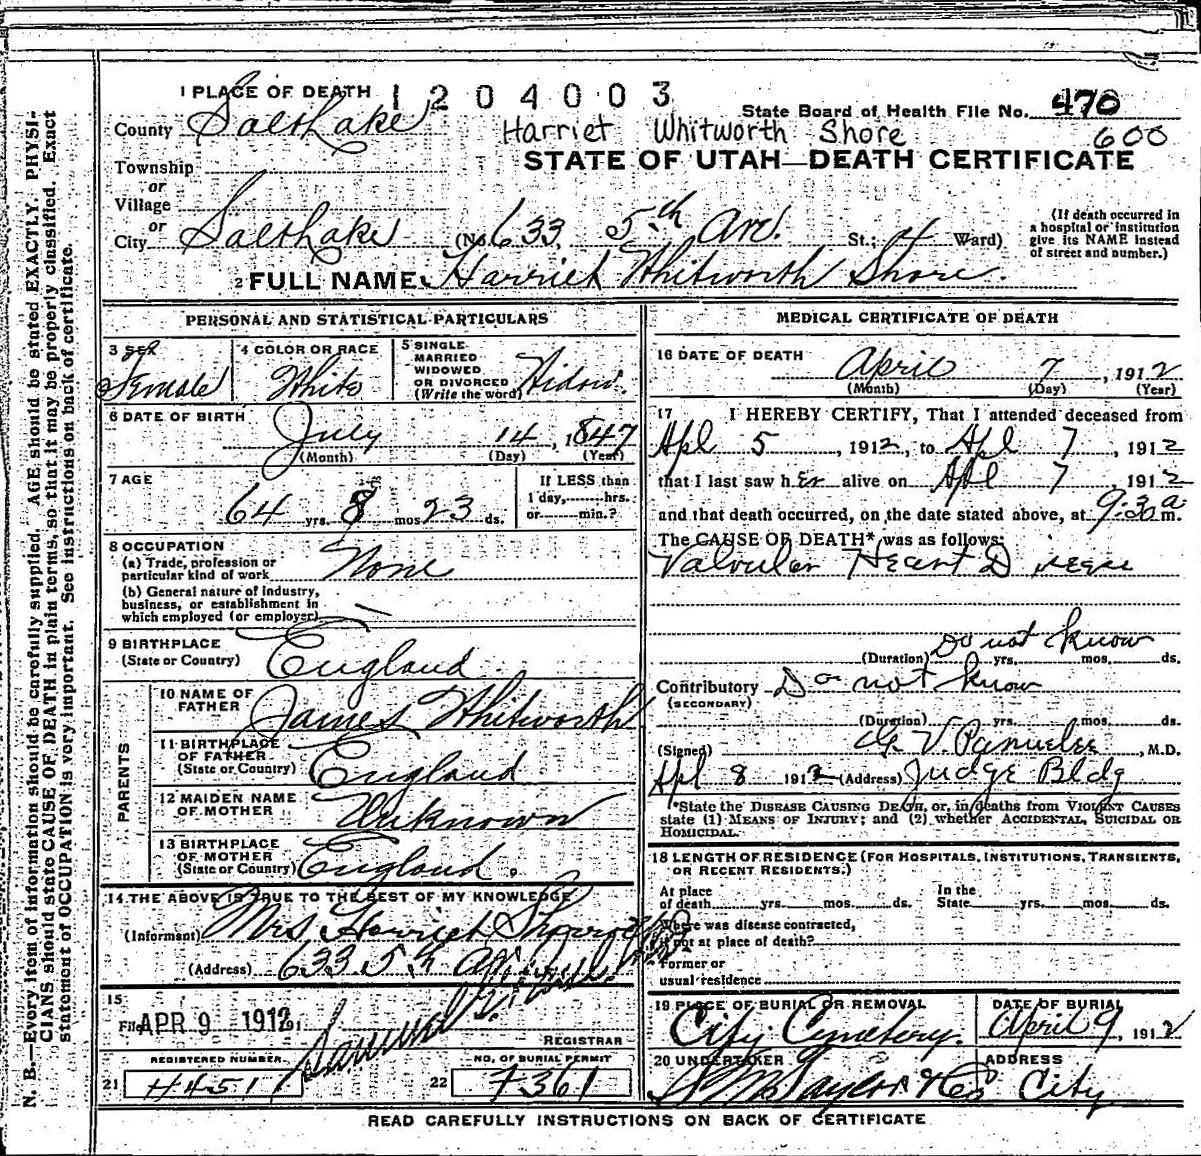 1 PLACE OF DEATH 1204003
State Board of Health File No. 470
County Salt Lake
Harriet Whitworth Shore 600
STATE OF UTAH—DEATH CERTIFICATE
Township
or
Village
or
City Salt Lake (No. 633 5th Ave. St.; 4 Ward)
(If death occurred in
a hospital or institution
give its NAME instead
of street and number.)
2 FULL NAME Harriet Whitworth Shore.
PERSONAL AND STATISTICAL PARTICULARS
3 SEX
Female
4 COLOR OR RACE
White
5 SINGLE
MARRIED
WIDOWED
OR DIVORCED
(Write the word)
Widow.
6 DATE OF BIRTH
July 14, 1847
(Month) (Day) (Year)
7 AGE
64 yrs. 8 mos 23 ds.
If LESS than
1 day,........hrs.
or........min.?
8 OCCUPATION
(a) Trade, profession or
particular kind of work None
(b) General nature of industry,
business, or establishment in
which employed (or employer)
9 BIRTHPLACE
(State or Country) England
PARENTS
10 NAME OF
FATHER James Whitworth
11 BIRTHPLACE
OF FATHER
(State or Country) England
12 MAIDEN NAME
OF MOTHER Unknown
13 BIRTHPLACE
OF MOTHER
(State or Country) England.
14 THE ABOVE IS TRUE TO THE BEST OF MY KNOWLEDGE
(Informant) Mrs Harriet
(Address) 633 5th
15
Filed APR 9 1912 191
REGISTRAR
REGISTERED NUMBER
21 H451
NO. OF BURIAL PERMIT
22 7361
MEDICAL CERTIFICATE OF DEATH
16 DATE OF DEATH
April 7, 1912
(Month) (Day) (Year)
17 I HEREBY CERTIFY, That I attended deceased from
Apl 5, 1912, to Apl 7, 1912
that I last saw h er alive on Apl 7, 1912
and that death occurred, on the date stated above, at 9:30 a m.
The CAUSE OF DEATH* was as follows:
Valvular Heart Disease
Do not know
(Duration) yrs. mos. ds.
Contributory Do not know
(SECONDARY)
(Duration) yrs. mos. ds.
(Signed) M.D.
Apl 8 1912 (Address) Judge Bldg
*State the DISEASE CAUSING DEATH, or, in deaths from VIOLENT CAUSES
state (1) MEANS OF INJURY; and (2) whether ACCIDENTAL, SUICIDAL OR
HOMICIDAL.
18 LENGTH OF RESIDENCE (FOR HOSPITALS, INSTITUTIONS, TRANSIENTS,
OR RECENT RESIDENTS.)
At place
of death yrs. mos. ds.
In the
State yrs. mos. ds.
Where was disease contracted,
if not at place of death?
Former or
usual residence
19 PLACE OF BURIAL OR REMOVAL
City Cemetery.
DATE OF BURIAL
April 9, 1912
20 UNDERTAKER
S. M. Taylor & Co
ADDRESS
City
READ CAREFULLY INSTRUCTIONS ON BACK OF CERTIFICATE
N. B.—Every item of information should be carefully supplied. AGE should be stated EXACTLY. PHYSI-
CIANS should state CAUSE OF DEATH in plain terms, so that it may be properly classified. Exact
statement of OCCUPATION is very important. See instructions on back of certificate.